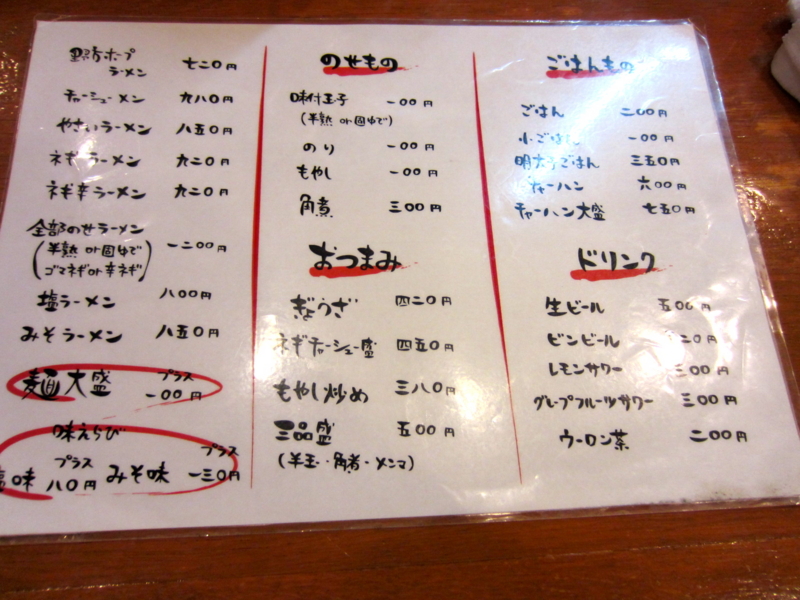 野方ホープ
ラーメン 七二〇円
チャーシューメン 九八〇円
やさいラーメン 八五〇円
ネギラーメン 九二〇円
ネギ辛ラーメン 九二〇円
全部のせラーメン
(半熟 or 固ゆで) 一二〇〇円
(ゴマネギ or 辛ネギ)
塩ラーメン 八〇〇円
みそラーメン 八五〇円
麺大盛 プラス 一〇〇円
味えらび
塩味 プラス 八〇円 みそ味 プラス 一三〇円
のせもの
味付玉子 一〇〇円
(半熟 or 固ゆで)
のり 一〇〇円
もやし 一〇〇円
角煮 三〇〇円
おつまみ
ぎょうざ 四二〇円
ネギチャーシュー盛 四五〇円
もやし炒め 三八〇円
三品盛 五〇〇円
(半玉・角煮・メンマ)
ごはんもの
ごはん 二〇〇円
小ごはん 一〇〇円
明太子ごはん 三五〇円
チャーハン 六〇〇円
チャーハン大盛 七五〇円
ドリンク
生ビール 五〇〇円
ビンビール 二〇円
レモンサワー 三〇〇円
グレープフルーツサワー 三〇〇円
ウーロン茶 二〇〇円